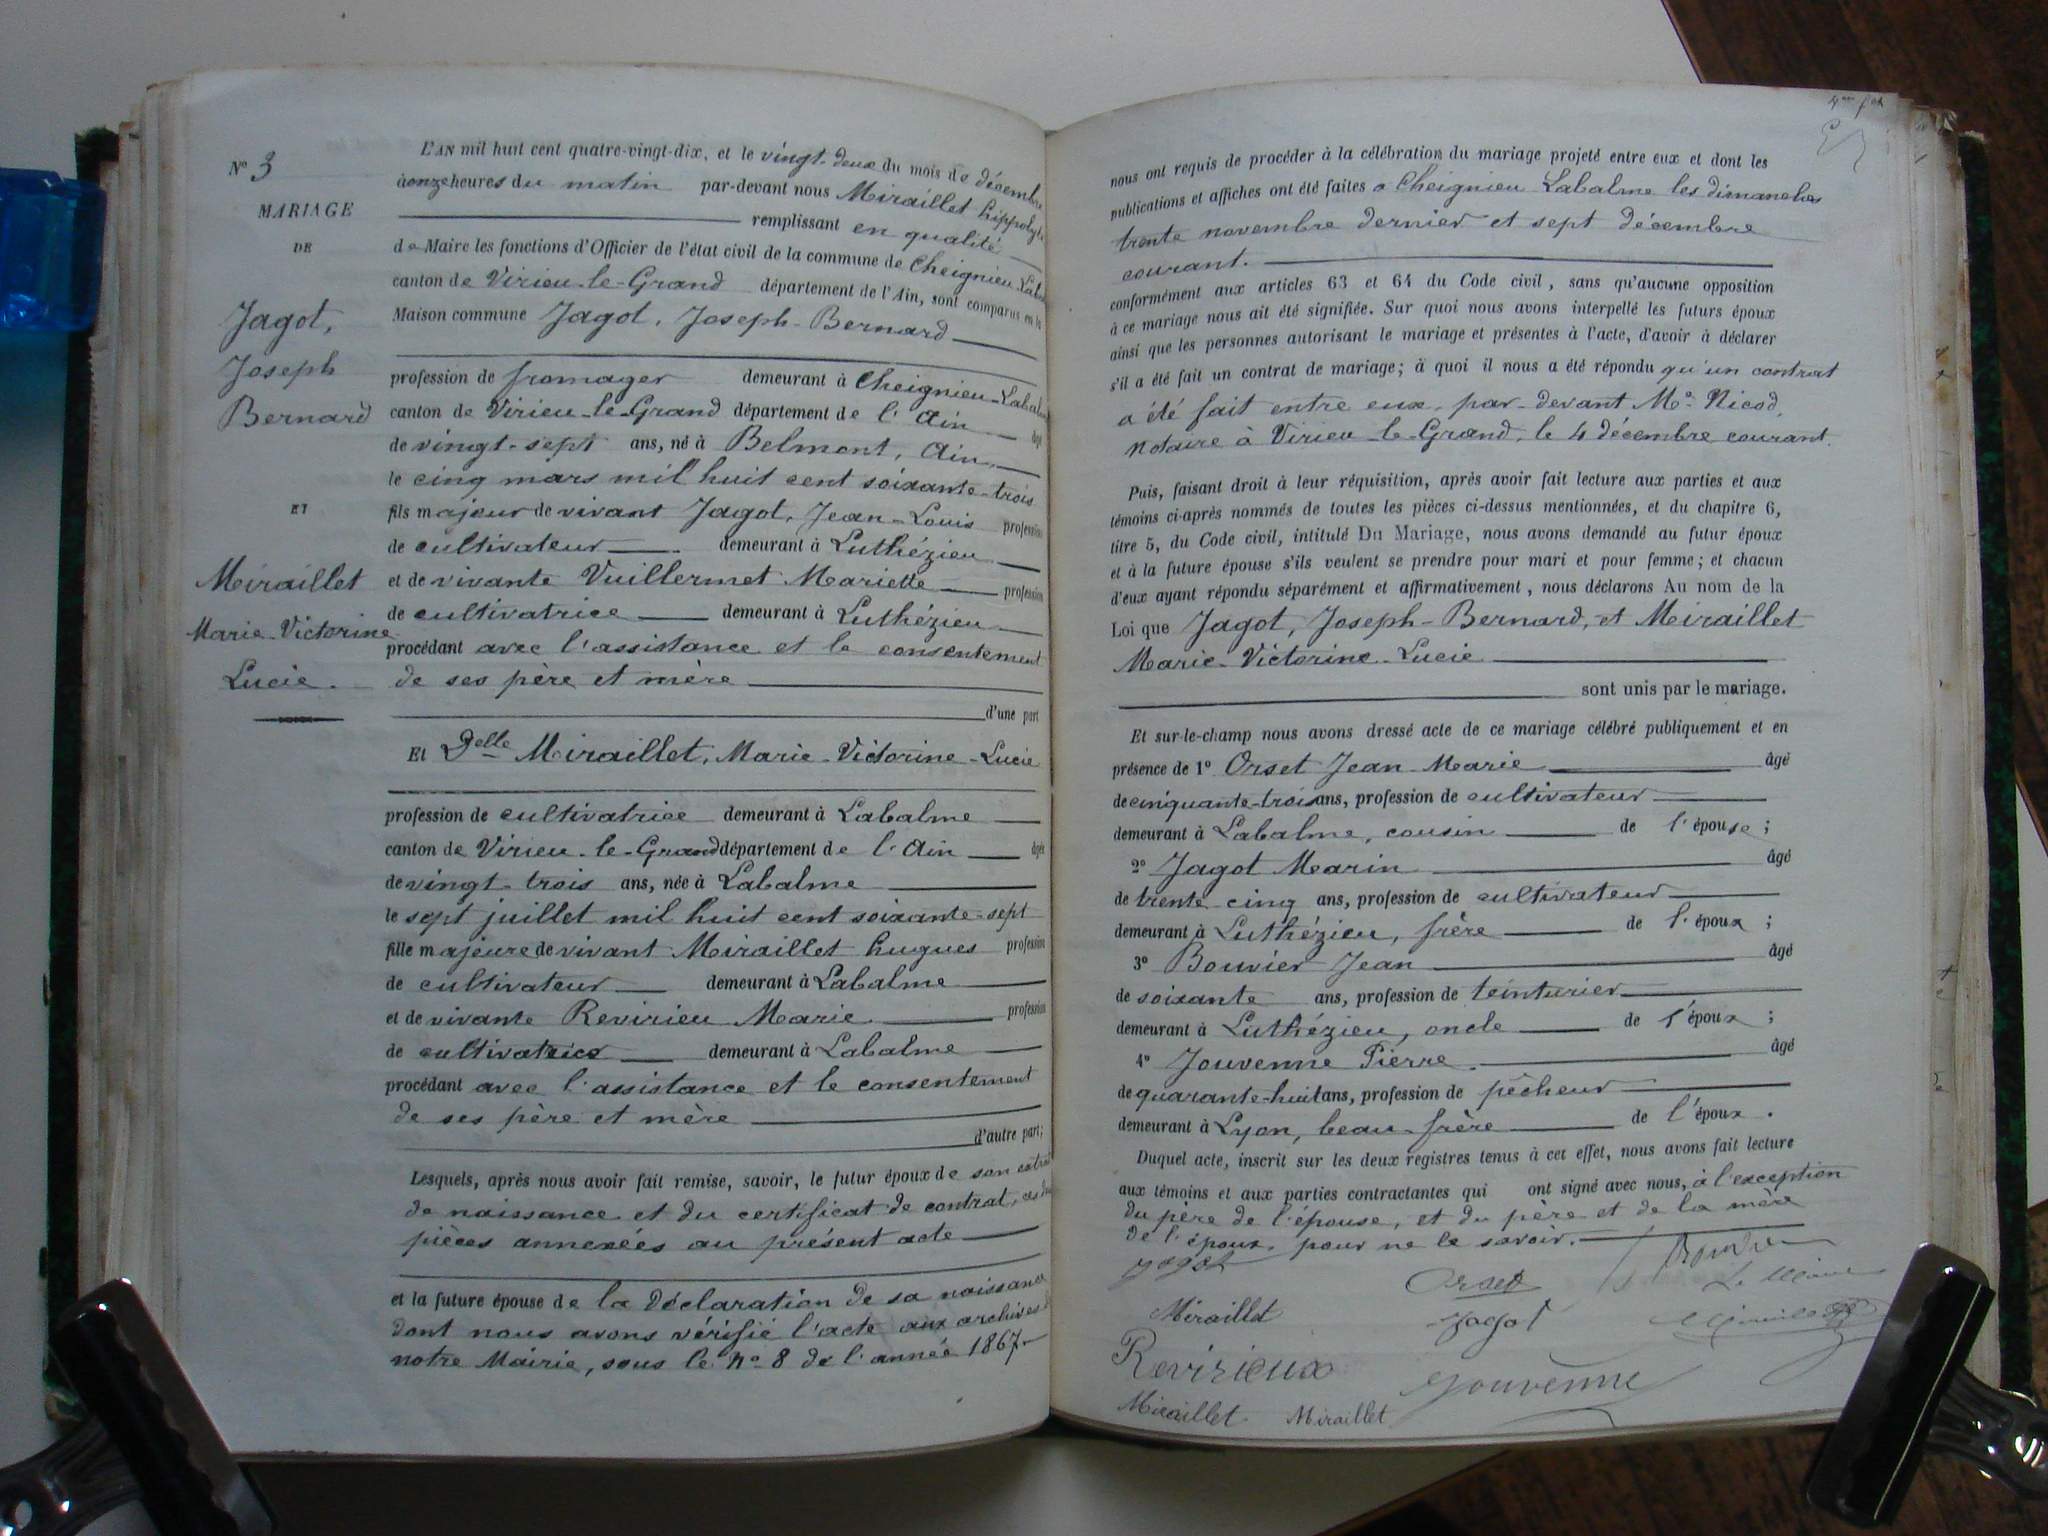 N° 3
MARIAGE
DE
Jagot,
Joseph
Bernard
ET
Miraillet
Marie-Victorine
Lucie.
L'AN mil huit cent quatre-vingt-dix, et le vingt-deux du mois de décembre
à onze heures du matin par-devant nous Miraillet hippolyte
remplissant en qualité
de Maire les fonctions d'Officier de l'état civil de la commune de Cheignieu
canton de Virieu-le-Grand département de l'Ain, sont comparus en la
Maison commune Jagot, Joseph-Bernard
profession de fromager demeurant à Cheignieu-Labalme
canton de Virieu-le-Grand département de l'Ain âgé
de vingt-sept ans, né à Belmont, Ain,
le cinq mars mil huit cent soixante-trois
fils majeur de vivant Jagot, Jean-Louis profession
de cultivateur demeurant à Luthézieu
et de vivante Vuillermet Mariette profession
de cultivatrice demeurant à Luthézieu
procédant avec l'assistance et le consentement
de ses père et mère
d'une part
Et Delle Miraillet, Marie-Victorine-Lucie
profession de cultivatrice demeurant à Labalme
canton de Virieu-le-Grand département de l'Ain âgée
de vingt-trois ans, née à Labalme
le sept juillet mil huit cent soixante-sept
fille majeure de vivant Miraillet hugues profession
de cultivateur demeurant à Labalme
et de vivante Revirieu Marie profession
de cultivatrice demeurant à Labalme
procédant avec l'assistance et le consentement
de ses père et mère
d'autre part;
Lesquels, après nous avoir fait remise, savoir, le futur époux de son extrait
de naissance et du certificat de contrat, ces deux
pièces annexées au présent acte
et la future épouse de la déclaration de sa naissance
dont nous avons vérifié l'acte aux archives de
notre Mairie, sous le n° 8 de l'année 1867
nous ont requis de procéder à la célébration du mariage projeté entre eux et dont les
publications et affiches ont été faites à Cheignieu Labalme les dimanches
trente novembre dernier et sept décembre
courant.
conformément aux articles 63 et 64 du Code civil, sans qu'aucune opposition
à ce mariage nous ait été signifiée. Sur quoi nous avons interpellé les futurs époux
ainsi que les personnes autorisant le mariage et présentes à l'acte, d'avoir à déclarer
s'il a été fait un contrat de mariage; à quoi il nous a été répondu qu'un contrat
a été fait entre eux, par-devant Me Nicod,
Notaire à Virieu-le-Grand, le 4 décembre courant.
Puis, faisant droit à leur réquisition, après avoir fait lecture aux parties et aux
témoins ci-après nommés de toutes les pièces ci-dessus mentionnées, et du chapitre 6,
titre 5, du Code civil, intitulé Du Mariage, nous avons demandé au futur époux
et à la future épouse s'ils veulent se prendre pour mari et pour femme; et chacun
d'eux ayant répondu séparément et affirmativement, nous déclarons Au nom de la
Loi que Jagot, Joseph-Bernard, et Miraillet
Marie-Victorine-Lucie
sont unis par le mariage.
Et sur-le-champ nous avons dressé acte de ce mariage célébré publiquement et en
présence de 1° Orset Jean-Marie âgé
de cinquante-trois ans, profession de cultivateur
demeurant à Labalme, cousin de l'épouse;
2° Jagot Marin âgé
de trente-cinq ans, profession de cultivateur
demeurant à Luthézieu, frère de l'époux;
3° Bouvier Jean âgé
de soixante ans, profession de teinturier
demeurant à Luthézieu, oncle de l'époux;
4° Jouvenne Pierre. âgé
de quarante-huit ans, profession de pêcheur
demeurant à Lyon, beau-frère de l'époux.
Duquel acte, inscrit sur les deux registres tenus à cet effet, nous avons fait lecture
aux témoins et aux parties contractantes qui ont signé avec nous, à l'exception
du père de l'épouse, et du père et de la mère
de l'époux, pour ne le savoir.
Jagot
Orset
Bouvier
Le Maire
Miraillet
Jagot
Miraillet
Revirieux
Jouvenne
Miraillet Miraillet